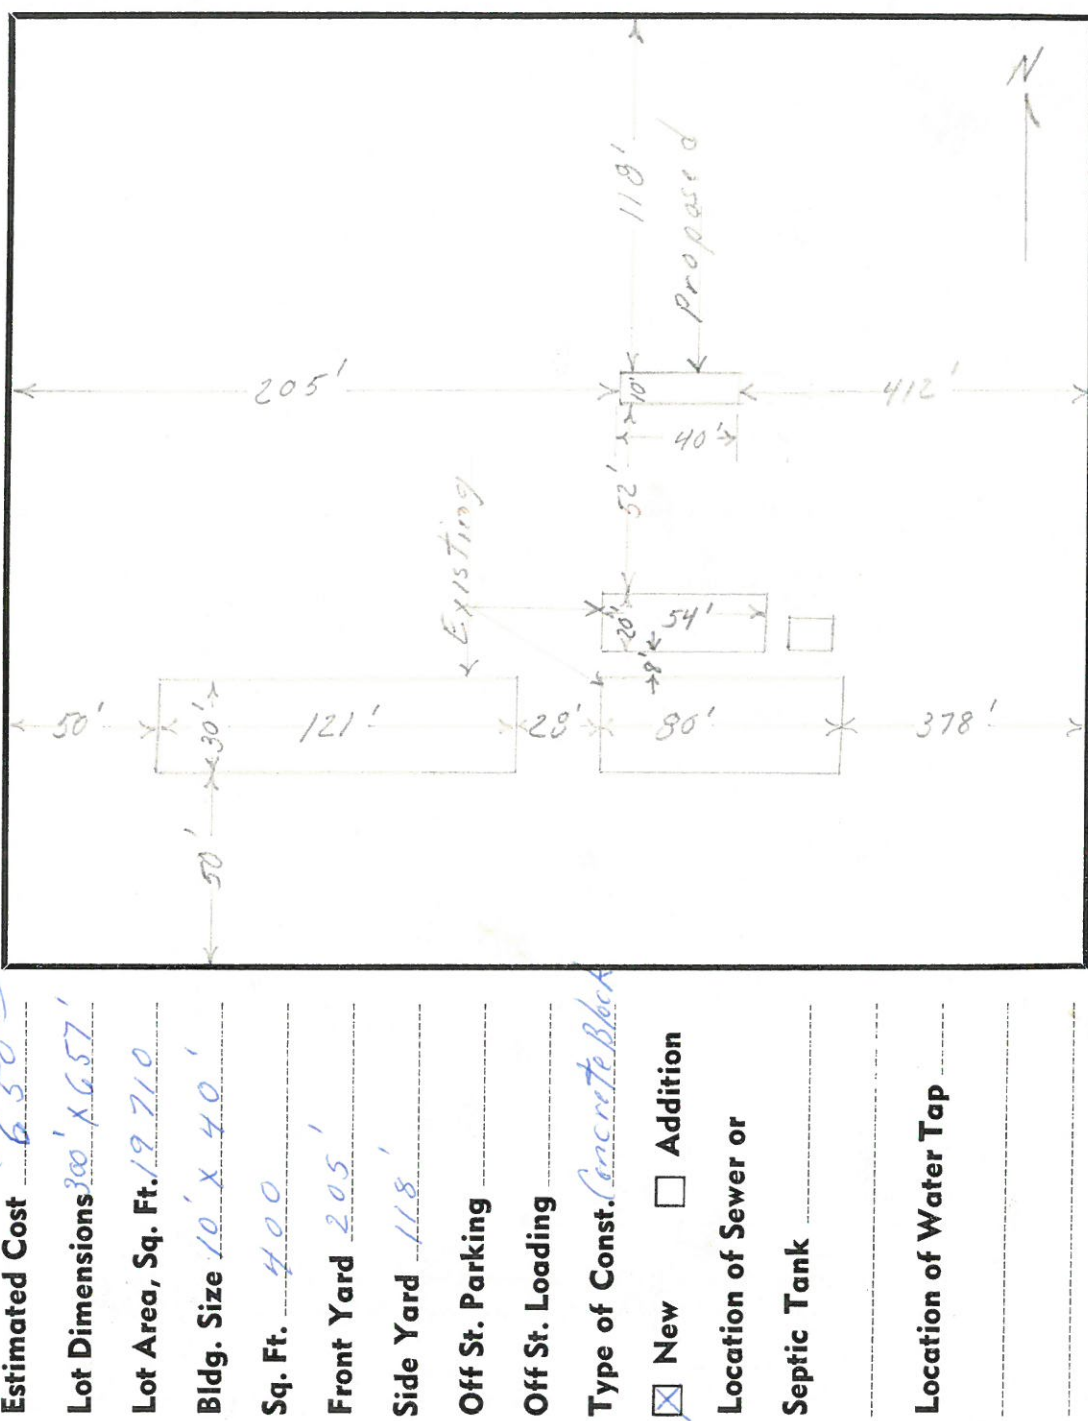 Estimated Cost 650
Lot Dimensions 300' X 657'
Lot Area, Sq. Ft. 19710
Bldg. Size 10' X 40'
Sq. Ft. 400
Front Yard 205'
Side Yard 118'
Off St. Parking
Off St. Loading
Type of Const. Concrete Block
X New Addition
Location of Sewer or
Septic Tank
Location of Water Tap
N
118'
Proposed
205'
10'
412'
40'
52'
Existing
20'
54'
8'
50'
30'
121'
28'
80'
378'
50'